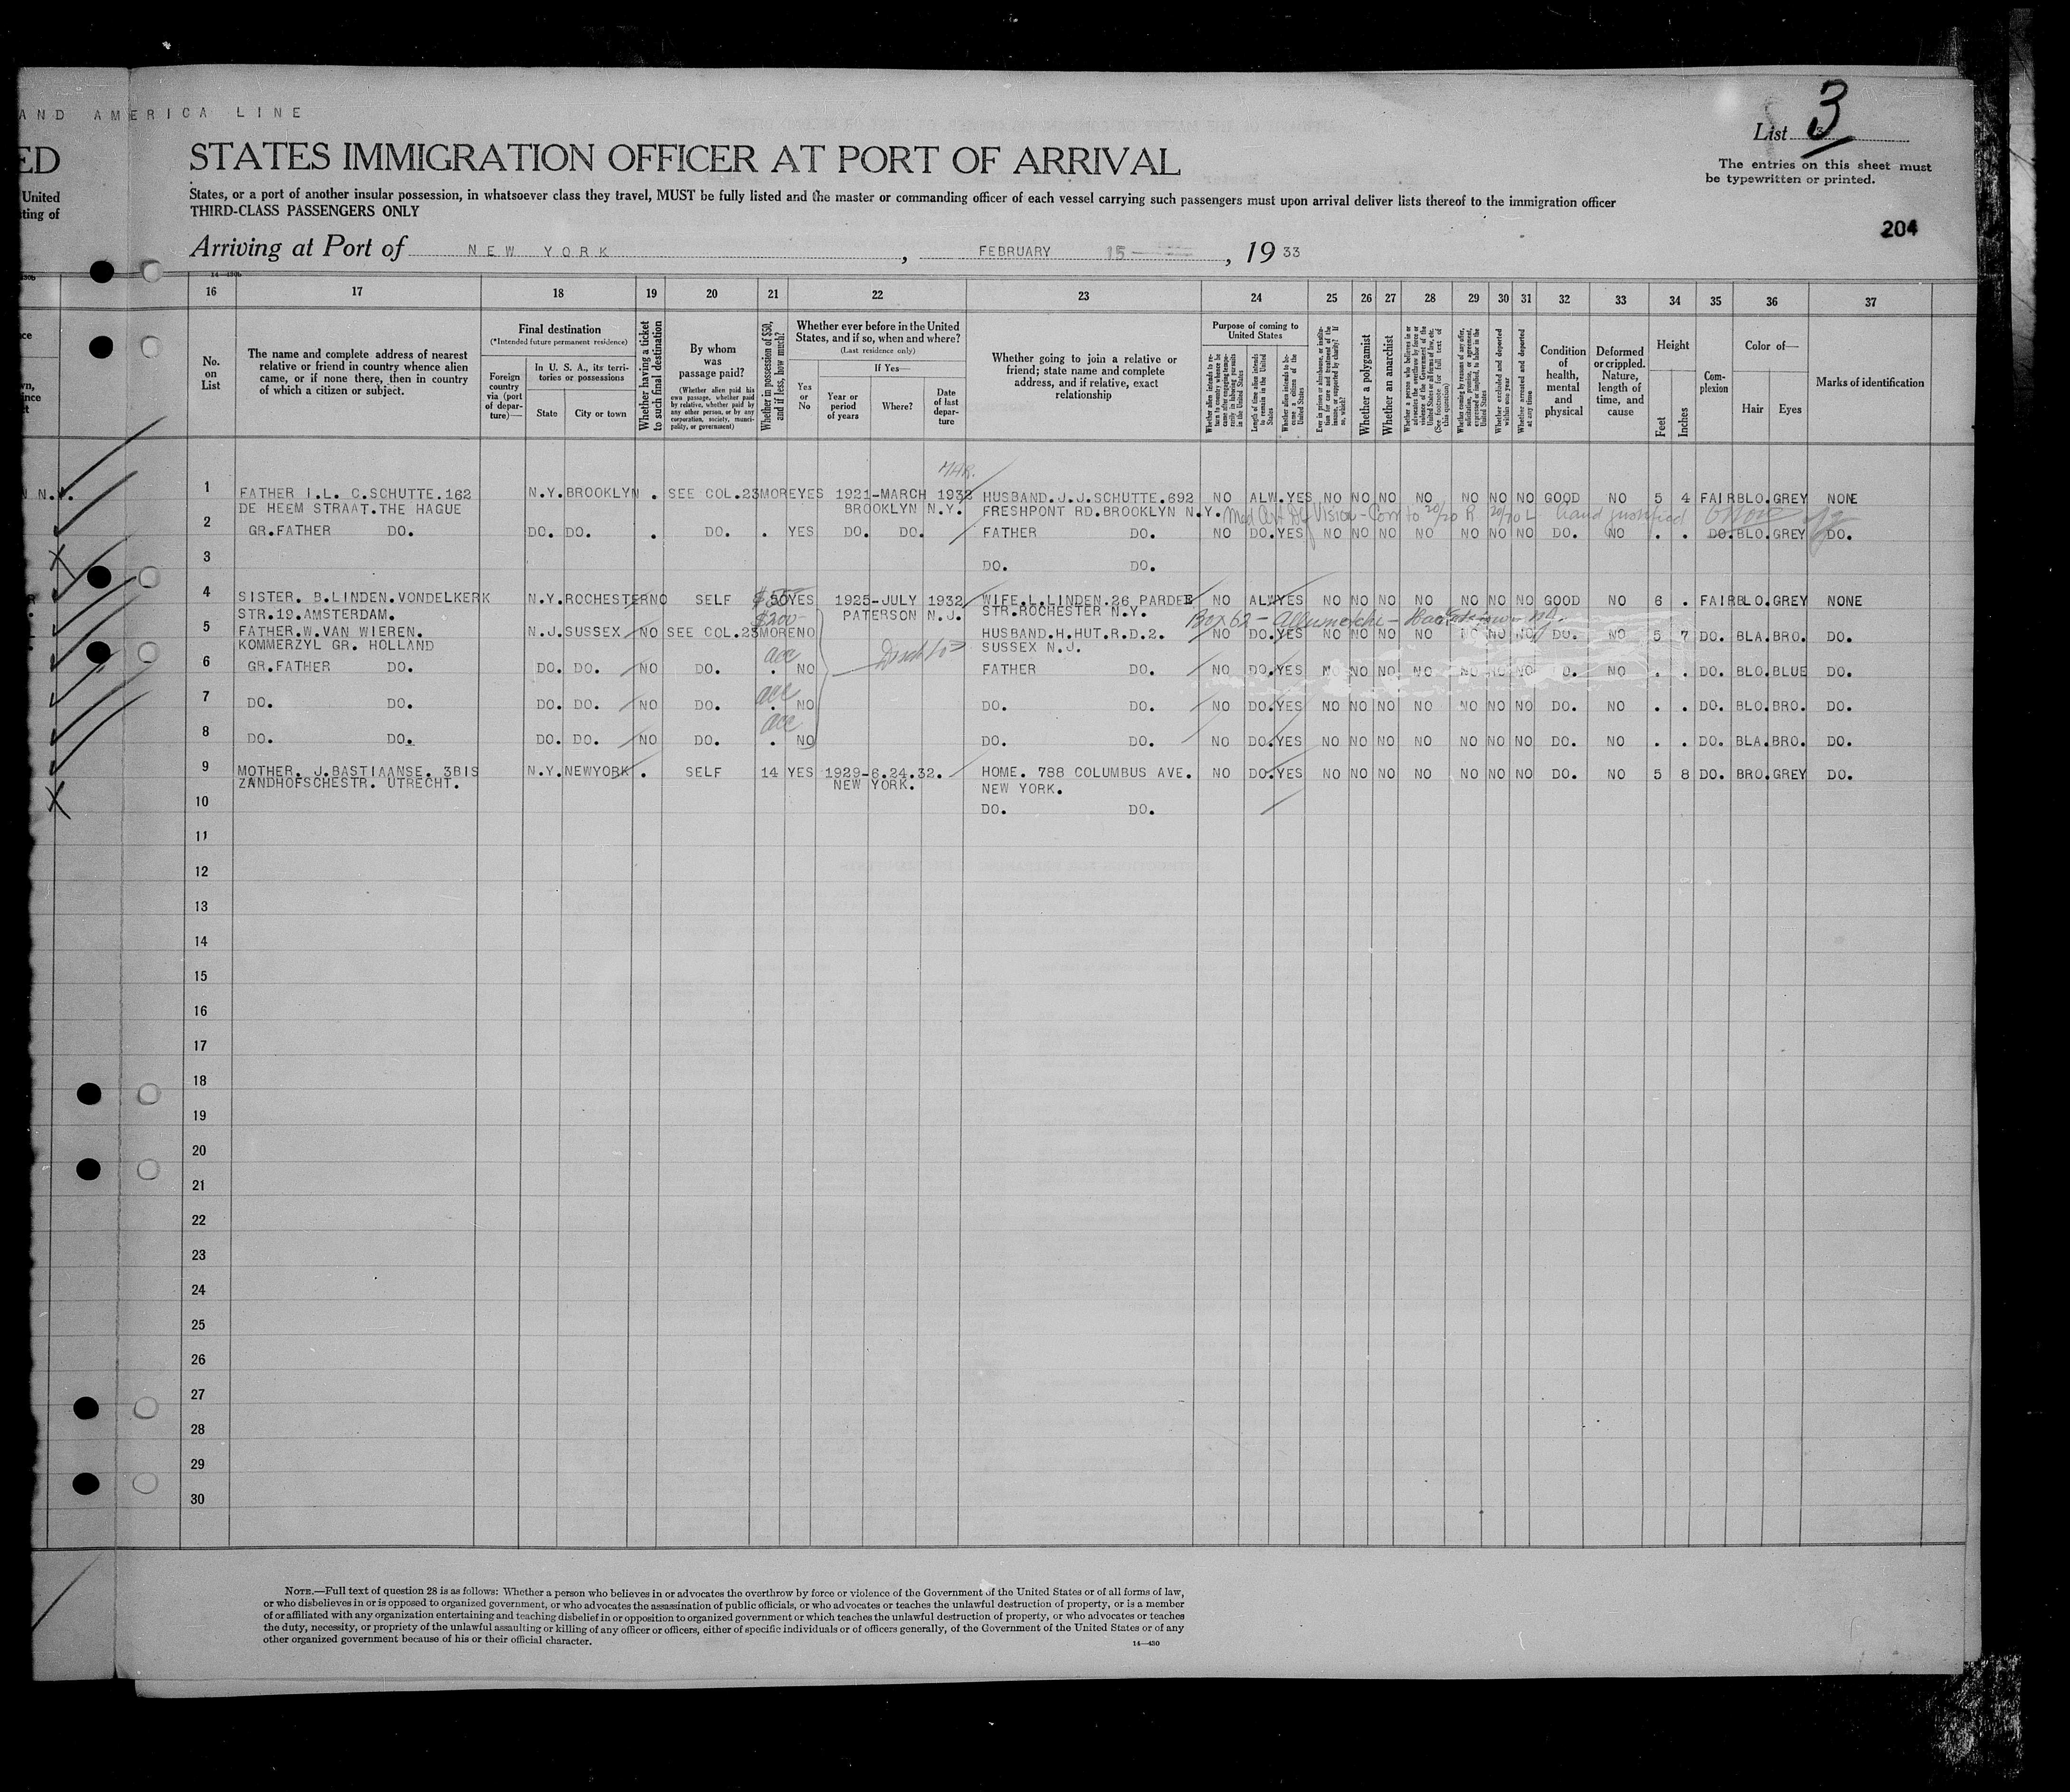 AND AMERICA LINE
List 3
ED
STATES IMMIGRATION OFFICER AT PORT OF ARRIVAL
The entries on this sheet must
be typewritten or printed.
United
ting of
States, or a port of another insular possession, in whatsoever class they travel, MUST be fully listed and the master or commanding officer of each vessel carrying such passengers must upon arrival deliver lists thereof to the immigration officer
THIRD-CLASS PASSENGERS ONLY
204
Arriving at Port of NEW YORK, FEBRUARY 15, 1933
14—430b
16 17 18 19 20 21 22 23 24 25 26 27 28 29 30 31 32 33 34 35 36 37
No. on List
The name and complete address of nearest relative or friend in country whence alien came, or if none there, then in country of which a citizen or subject.
Final destination
(*Intended future permanent residence)
Foreign country via (port of departure)—
In U. S. A., its territories or possessions
State
City or town
Whether having a ticket to such final destination
By whom was passage paid?
(Whether alien paid his own passage, whether paid by relative, whether paid by any other person, or by any corporation, society, municipality, or government)
Whether in possession of $50, and if less, how much?
Whether ever before in the United States, and if so, when and where?
(Last residence only)
Yes or No
If Yes—
Year or period of years
Where?
Date of last departure
Whether going to join a relative or friend; state name and complete address, and if relative, exact relationship
Purpose of coming to United States
Whether alien intends to return to country whence he came after engaging temporarily in laboring pursuits in the United States
Length of time alien intends to remain in the United States
Whether alien intends to become a citizen of the United States
Ever in prison or almshouse, or institution for care and treatment of the insane, or supported by charity? If so, which?
Whether a polygamist
Whether an anarchist
Whether a person who believes in or advocates the overthrow by force or violence of the Government of the United States or all forms of law, etc. (See footnote for full text of this question)
Whether coming by reason of any offer, solicitation, promise, or agreement, expressed or implied, to labor in the United States
Whether excluded and deported within one year
Whether arrested and deported at any time
Condition of health, mental and physical
Deformed or crippled. Nature, length of time, and cause
Height
Feet
Inches
Complexion
Color of—
Hair
Eyes
Marks of identification
1 FATHER I.L. C.SCHUTTE.162 N.Y. BROOKLYN . SEE COL.23 MORE YES 1921-MARCH 1933 HUSBAND.J.J.SCHUTTE.692 NO ALW. YES NO NO NO NO NO NO NO GOOD NO 5 4 FAIR BLO. GREY NONE
DE HEEM STRAAT.THE HAGUE BROOKLYN N.Y. FRESHPONT RD.BROOKLYN N.Y. Med Cert Def Vision - Corr to 20/20 R 20/70 L
2 GR.FATHER DO. DO. DO. . DO. . YES DO. DO. FATHER DO. NO DO. YES NO NO NO NO NO NO NO DO. NO . . DO. BLO. GREY DO.
3 DO. DO.
4 SISTER. B.LINDEN.VONDELKERK N.Y. ROCHESTER NO SELF $50 YES 1925-JULY 1932 WIFE.L.LINDEN.26 PARDEE NO ALW YES NO NO NO NO NO NO NO GOOD NO 6 . FAIR BLO. GREY NONE
STR.19.AMSTERDAM. $200 PATERSON N.J. STR.ROCHESTER N.Y. Box 62 -
5 FATHER.W.VAN WIEREN. N.J. SUSSEX NO SEE COL.23 MORE NO HUSBAND.H.HUT.R.D.2. NO DO. YES NO NO NO NO NO NO NO DO. NO 5 7 DO. BLA. BRO. DO.
KOMMERZYL GR. HOLLAND SUSSEX N.J.
6 GR.FATHER DO. DO. DO. NO DO. . NO FATHER DO. NO DO. YES NO NO NO NO NO NO NO DO. NO . . DO. BLO. BLUE DO.
7 DO. DO. DO. DO. NO DO. acc . NO DO. DO. NO DO. YES NO NO NO NO NO NO NO DO. NO . . DO. BLO. BRO. DO.
8 DO. DO. DO. DO. NO DO. acc . NO DO. DO. NO DO. YES NO NO NO NO NO NO NO DO. NO . . DO. BLA. BRO. DO.
9 MOTHER. J.BASTIAANSE. 3BIS N.Y. NEWYORK . SELF 14 YES 1929-6.24.32. HOME. 788 COLUMBUS AVE. NO DO. YES NO NO NO NO NO NO NO DO. NO 5 8 DO. BRO. GREY DO.
ZANDHOFSCHESTR. UTRECHT. NEW YORK. NEW YORK.
10 DO. DO.
11
12
13
14
15
16
17
18
19
20
21
22
23
24
25
26
27
28
29
30
NOTE.—Full text of question 28 is as follows: Whether a person who believes in or advocates the overthrow by force or violence of the Government of the United States or of all forms of law,
or who disbelieves in or is opposed to organized government, or who advocates the assassination of public officials, or who advocates or teaches the unlawful destruction of property, or is a member
of or affiliated with any organization entertaining and teaching disbelief in or opposition to organized government or which teaches the unlawful destruction of property, or who advocates or teaches
the duty, necessity, or propriety of the unlawful assaulting or killing of any officer or officers, either of specific individuals or of officers generally, of the Government of the United States or of any
other organized government because of his or their official character.
14—430